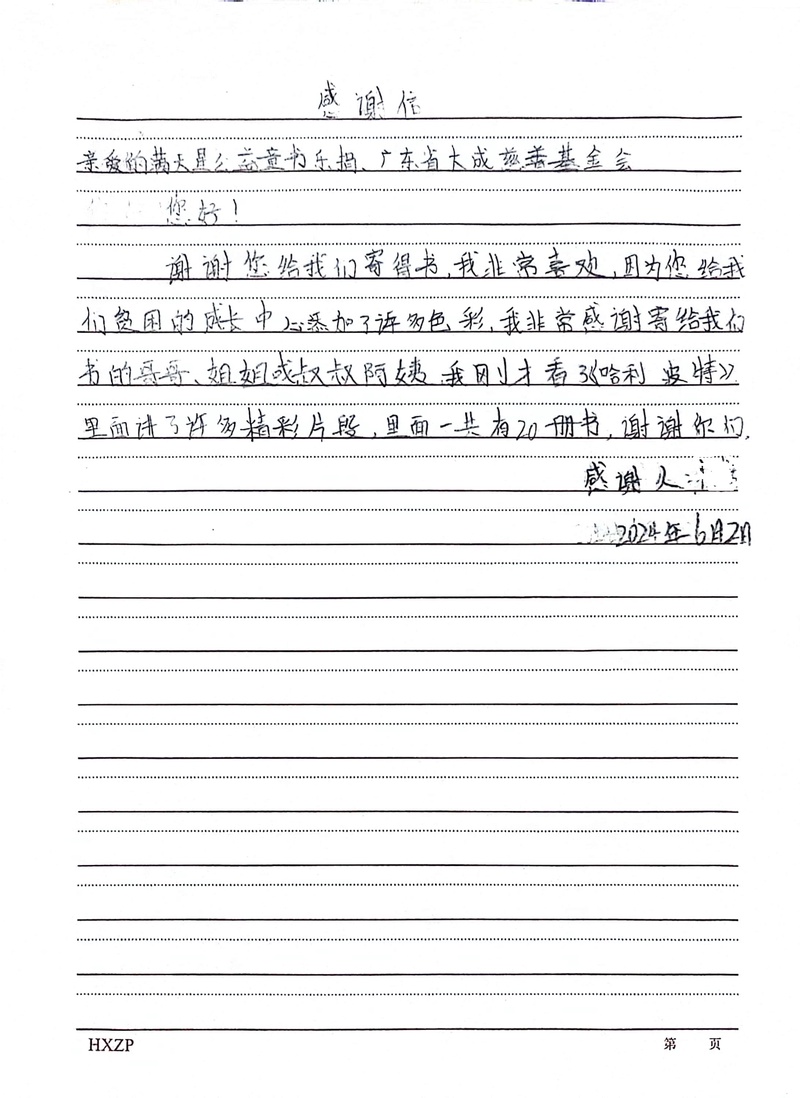 感谢信
亲爱的满天星公益童书乐捐、广东省大成慈善基金会
您好!
谢谢您给我们寄得书,我非常喜欢,因为您给我
们贫困的成长中心添加了许多色彩,我非常感谢寄给我们
书的哥哥、姐姐或叔叔阿姨,我刚才看了《哈利波特》
里面讲了许多精彩片段,里面一共有20册书,谢谢你们.
感谢人:
2024年6月2日
HXZP 第 页